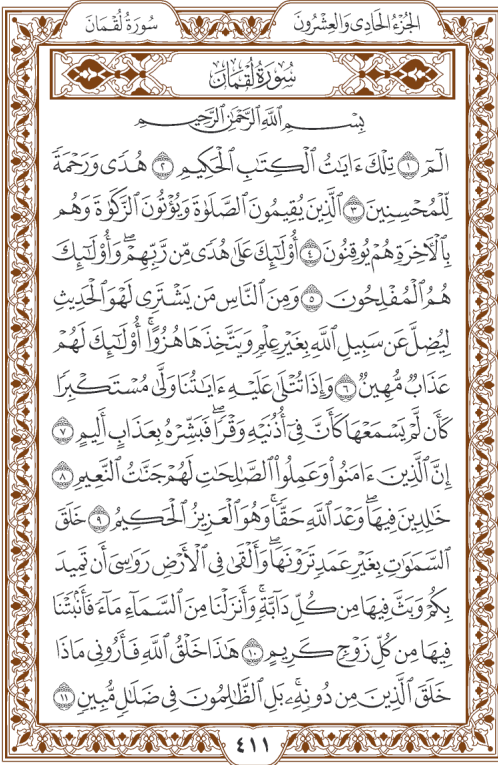 سُورَةُ لُقْمَانَ
الجُزْءُ الحَادِى وَالعِشْرُونَ
سُورَةُ لُقْمَانَ
بِسْمِ ٱللَّهِ ٱلرَّحْمَٰنِ ٱلرَّحِيمِ
الٓمٓ ١ تِلْكَ ءَايَٰتُ ٱلْكِتَٰبِ ٱلْحَكِيمِ ٢ هُدًى وَرَحْمَةً
لِّلْمُحْسِنِينَ ٣ ٱلَّذِينَ يُقِيمُونَ ٱلصَّلَوٰةَ وَيُؤْتُونَ ٱلزَّكَوٰةَ وَهُم
بِٱلْأَخِرَةِ هُمْ يُوقِنُونَ ٤ أُو۟لَٰٓئِكَ عَلَىٰ هُدًى مِّن رَّبِّهِمْ ۖ وَأُو۟لَٰٓئِكَ
هُمُ ٱلْمُفْلِحُونَ ٥ وَمِنَ ٱلنَّاسِ مَن يَشْتَرِى لَهْوَ ٱلْحَدِيثِ
لِيُضِلَّ عَن سَبِيلِ ٱللَّهِ بِغَيْرِ عِلْمٍ وَيَتَّخِذَهَا هُزُوًا ۚ أُو۟لَٰٓئِكَ لَهُمْ
عَذَابٌ مُّهِينٌ ٦ وَإِذَا تُتْلَىٰ عَلَيْهِ ءَايَٰتُنَا وَلَّىٰ مُسْتَكْبِرًا
كَأَن لَّمْ يَسْمَعْهَا كَأَنَّ فِىٓ أُذُنَيْهِ وَقْرًا ۖ فَبَشِّرْهُ بِعَذَابٍ أَلِيمٍ ٧
إِنَّ ٱلَّذِينَ ءَامَنُوا۟ وَعَمِلُوا۟ ٱلصَّٰلِحَٰتِ لَهُمْ جَنَّٰتُ ٱلنَّعِيمِ ٨
خَٰلِدِينَ فِيهَا ۖ وَعْدَ ٱللَّهِ حَقًّا ۚ وَهُوَ ٱلْعَزِيزُ ٱلْحَكِيمُ ٩ خَلَقَ
ٱلسَّمَٰوَٰتِ بِغَيْرِ عَمَدٍ تَرَوْنَهَا ۖ وَأَلْقَىٰ فِى ٱلْأَرْضِ رَوَٰسِىَ أَن تَمِيدَ
بِكُمْ وَبَثَّ فِيهَا مِن كُلِّ دَآبَّةٍ ۚ وَأَنزَلْنَا مِنَ ٱلسَّمَآءِ مَآءً فَأَنۢبَتْنَا
فِيهَا مِن كُلِّ زَوْجٍ كَرِيمٍ ١٠ هَٰذَا خَلْقُ ٱللَّهِ فَأَرُونِى مَاذَا
خَلَقَ ٱلَّذِينَ مِن دُونِهِۦ ۚ بَلِ ٱلظَّٰلِمُونَ فِى ضَلَٰلٍ مُّبِينٍ ١١
٤١١